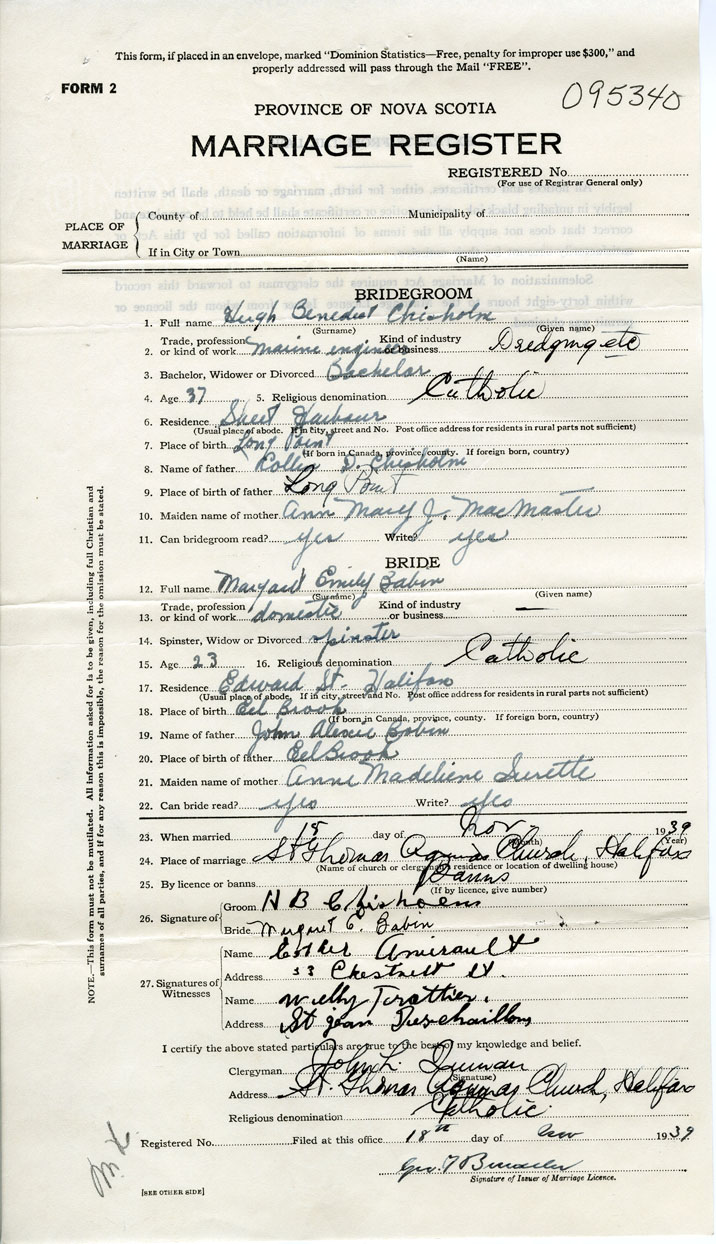 This form, if placed in an envelope, marked "Dominion Statistics—Free, penalty for improper use $300," and
properly addressed will pass through the Mail "FREE".
FORM 2
095340
PROVINCE OF NOVA SCOTIA
MARRIAGE REGISTER
REGISTERED No.
(For use of Registrar General only)
PLACE OF MARRIAGE
County of
Municipality of
If in City or Town
(Name)
BRIDEGROOM
1. Full name Hugh Benedict Chisholm
(Surname) (Given name)
2. Trade, profession or kind of work Marine engineer Kind of industry or business Dredging etc
3. Bachelor, Widower or Divorced Bachelor
4. Age 37 5. Religious denomination Catholic
6. Residence Sheet Harbour
(Usual place of abode. If in City, street and No. Post office address for residents in rural parts not sufficient)
7. Place of birth Long Point
(If born in Canada, province, county. If foreign born, country)
8. Name of father D. Chisholm
9. Place of birth of father Long Point
10. Maiden name of mother Ann Mary J. MacMaster
11. Can bridegroom read? yes Write? yes
BRIDE
12. Full name Margaret Emily Babin
(Surname) (Given name)
13. Trade, profession or kind of work domestic Kind of industry or business —
14. Spinster, Widow or Divorced spinster
15. Age 23 16. Religious denomination Catholic
17. Residence Edward St. Halifax
(Usual place of abode. If in city, street and No. Post office address for residents in rural parts not sufficient)
18. Place of birth Eel Brook
(If born in Canada, province, county. If foreign born, country)
19. Name of father John Babin
20. Place of birth of father Eel Brook
21. Maiden name of mother Anne Madeliene Surette
22. Can bride read? yes Write? yes
23. When married 18 day of Nov 1939
(Month) (Year)
24. Place of marriage St Thomas Aquinas Church, Halifax
(Name of church or clergyman's residence or location of dwelling house)
25. By licence or banns Banns
(If by licence, give number)
26. Signature of
Groom H B Chisholm
Bride Margaret E. Babin
27. Signatures of Witnesses
Name Esther Amirault
Address 33 Chestnut St.
Name Willy Trottier.
Address St jean Deschaillons
I certify the above stated particulars are true to the best of my knowledge and belief.
Clergyman John L. Quinan
(Signature)
Address St. Thomas Aquinas Church, Halifax
Religious denomination Catholic
Registered No. Filed at this office 18th day of Nov 1939
Geo.
Signature of Issuer of Marriage Licence.
[SEE OTHER SIDE]
NOTE.—This form must not be mutilated. All information asked for is to be given, including full Christian and
surnames of all parties, and if for any reason this is impossible, the reason for the omission must be stated.